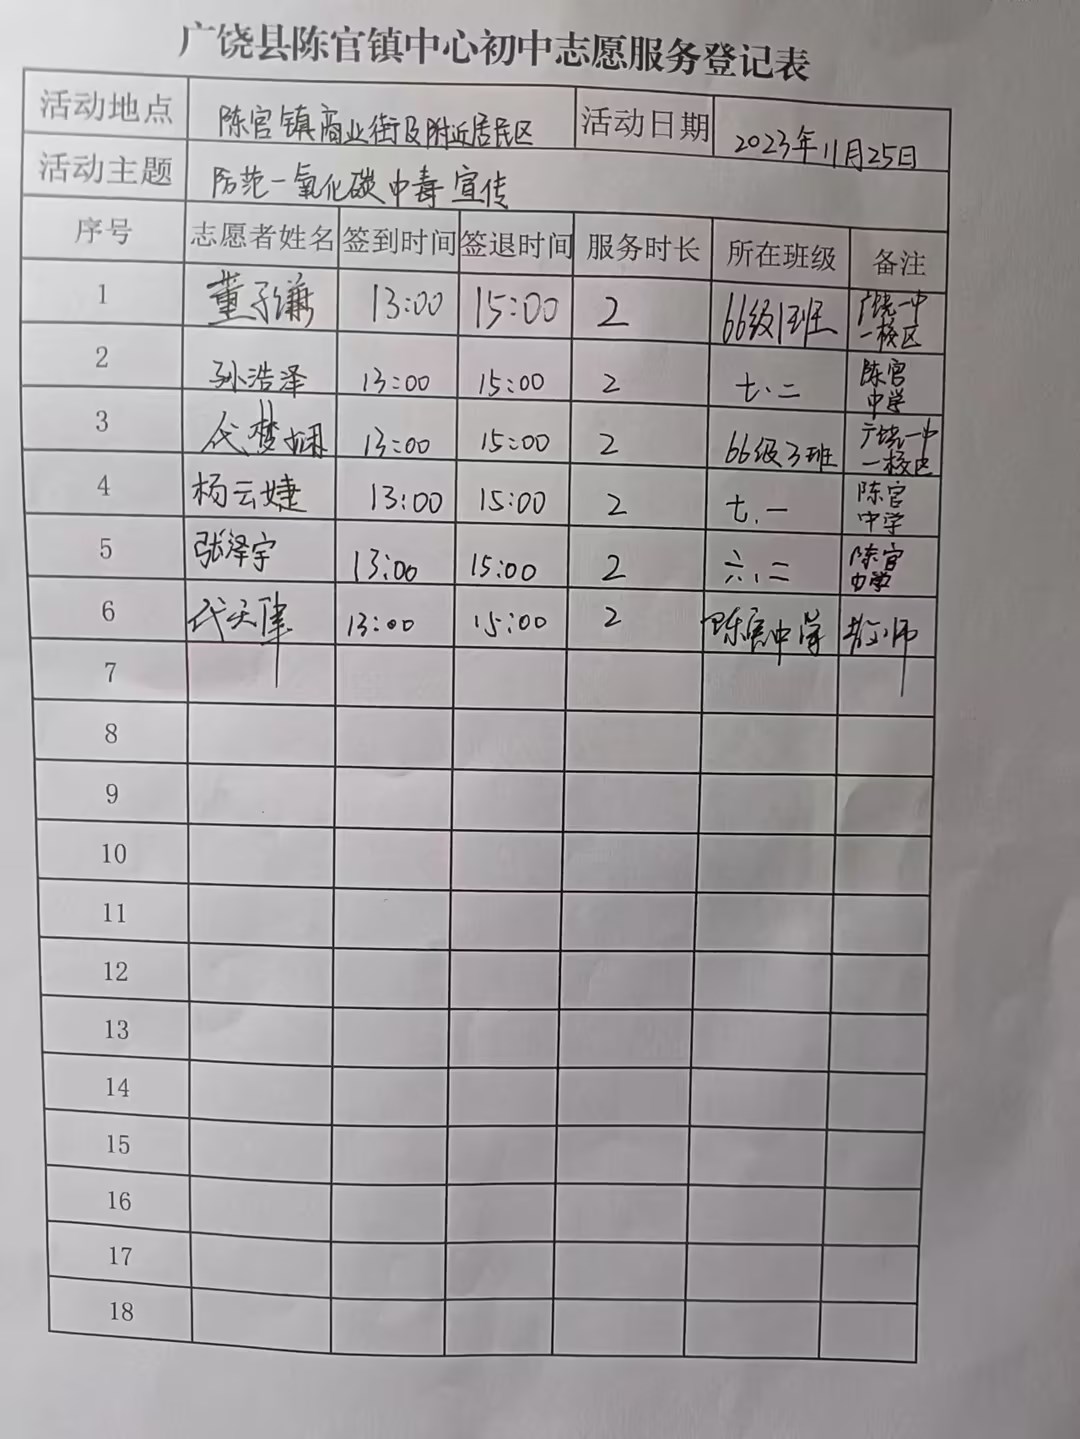 广饶县陈官镇中心初中志愿服务登记表
活动地点 陈官镇商业街及附近居民区 活动日期 2023年11月25日
活动主题 防范一氧化碳中毒宣传
序号 志愿者姓名 签到时间 签退时间 服务时长 所在班级 备注
1 董子谦 13:00 15:00 2 66级1班 广饶一中一校区
2 孙浩泽 13:00 15:00 2 七.二 陈官中学
3 代梦娴 13:00 15:00 2 66级3班 广饶一中一校区
4 杨云婕 13:00 15:00 2 七.一 陈官中学
5 张泽宇 13:00 15:00 2 六.二 陈官中学
6 代天津 13:00 15:00 2 陈官中学 教师
7
8
9
10
11
12
13
14
15
16
17
18